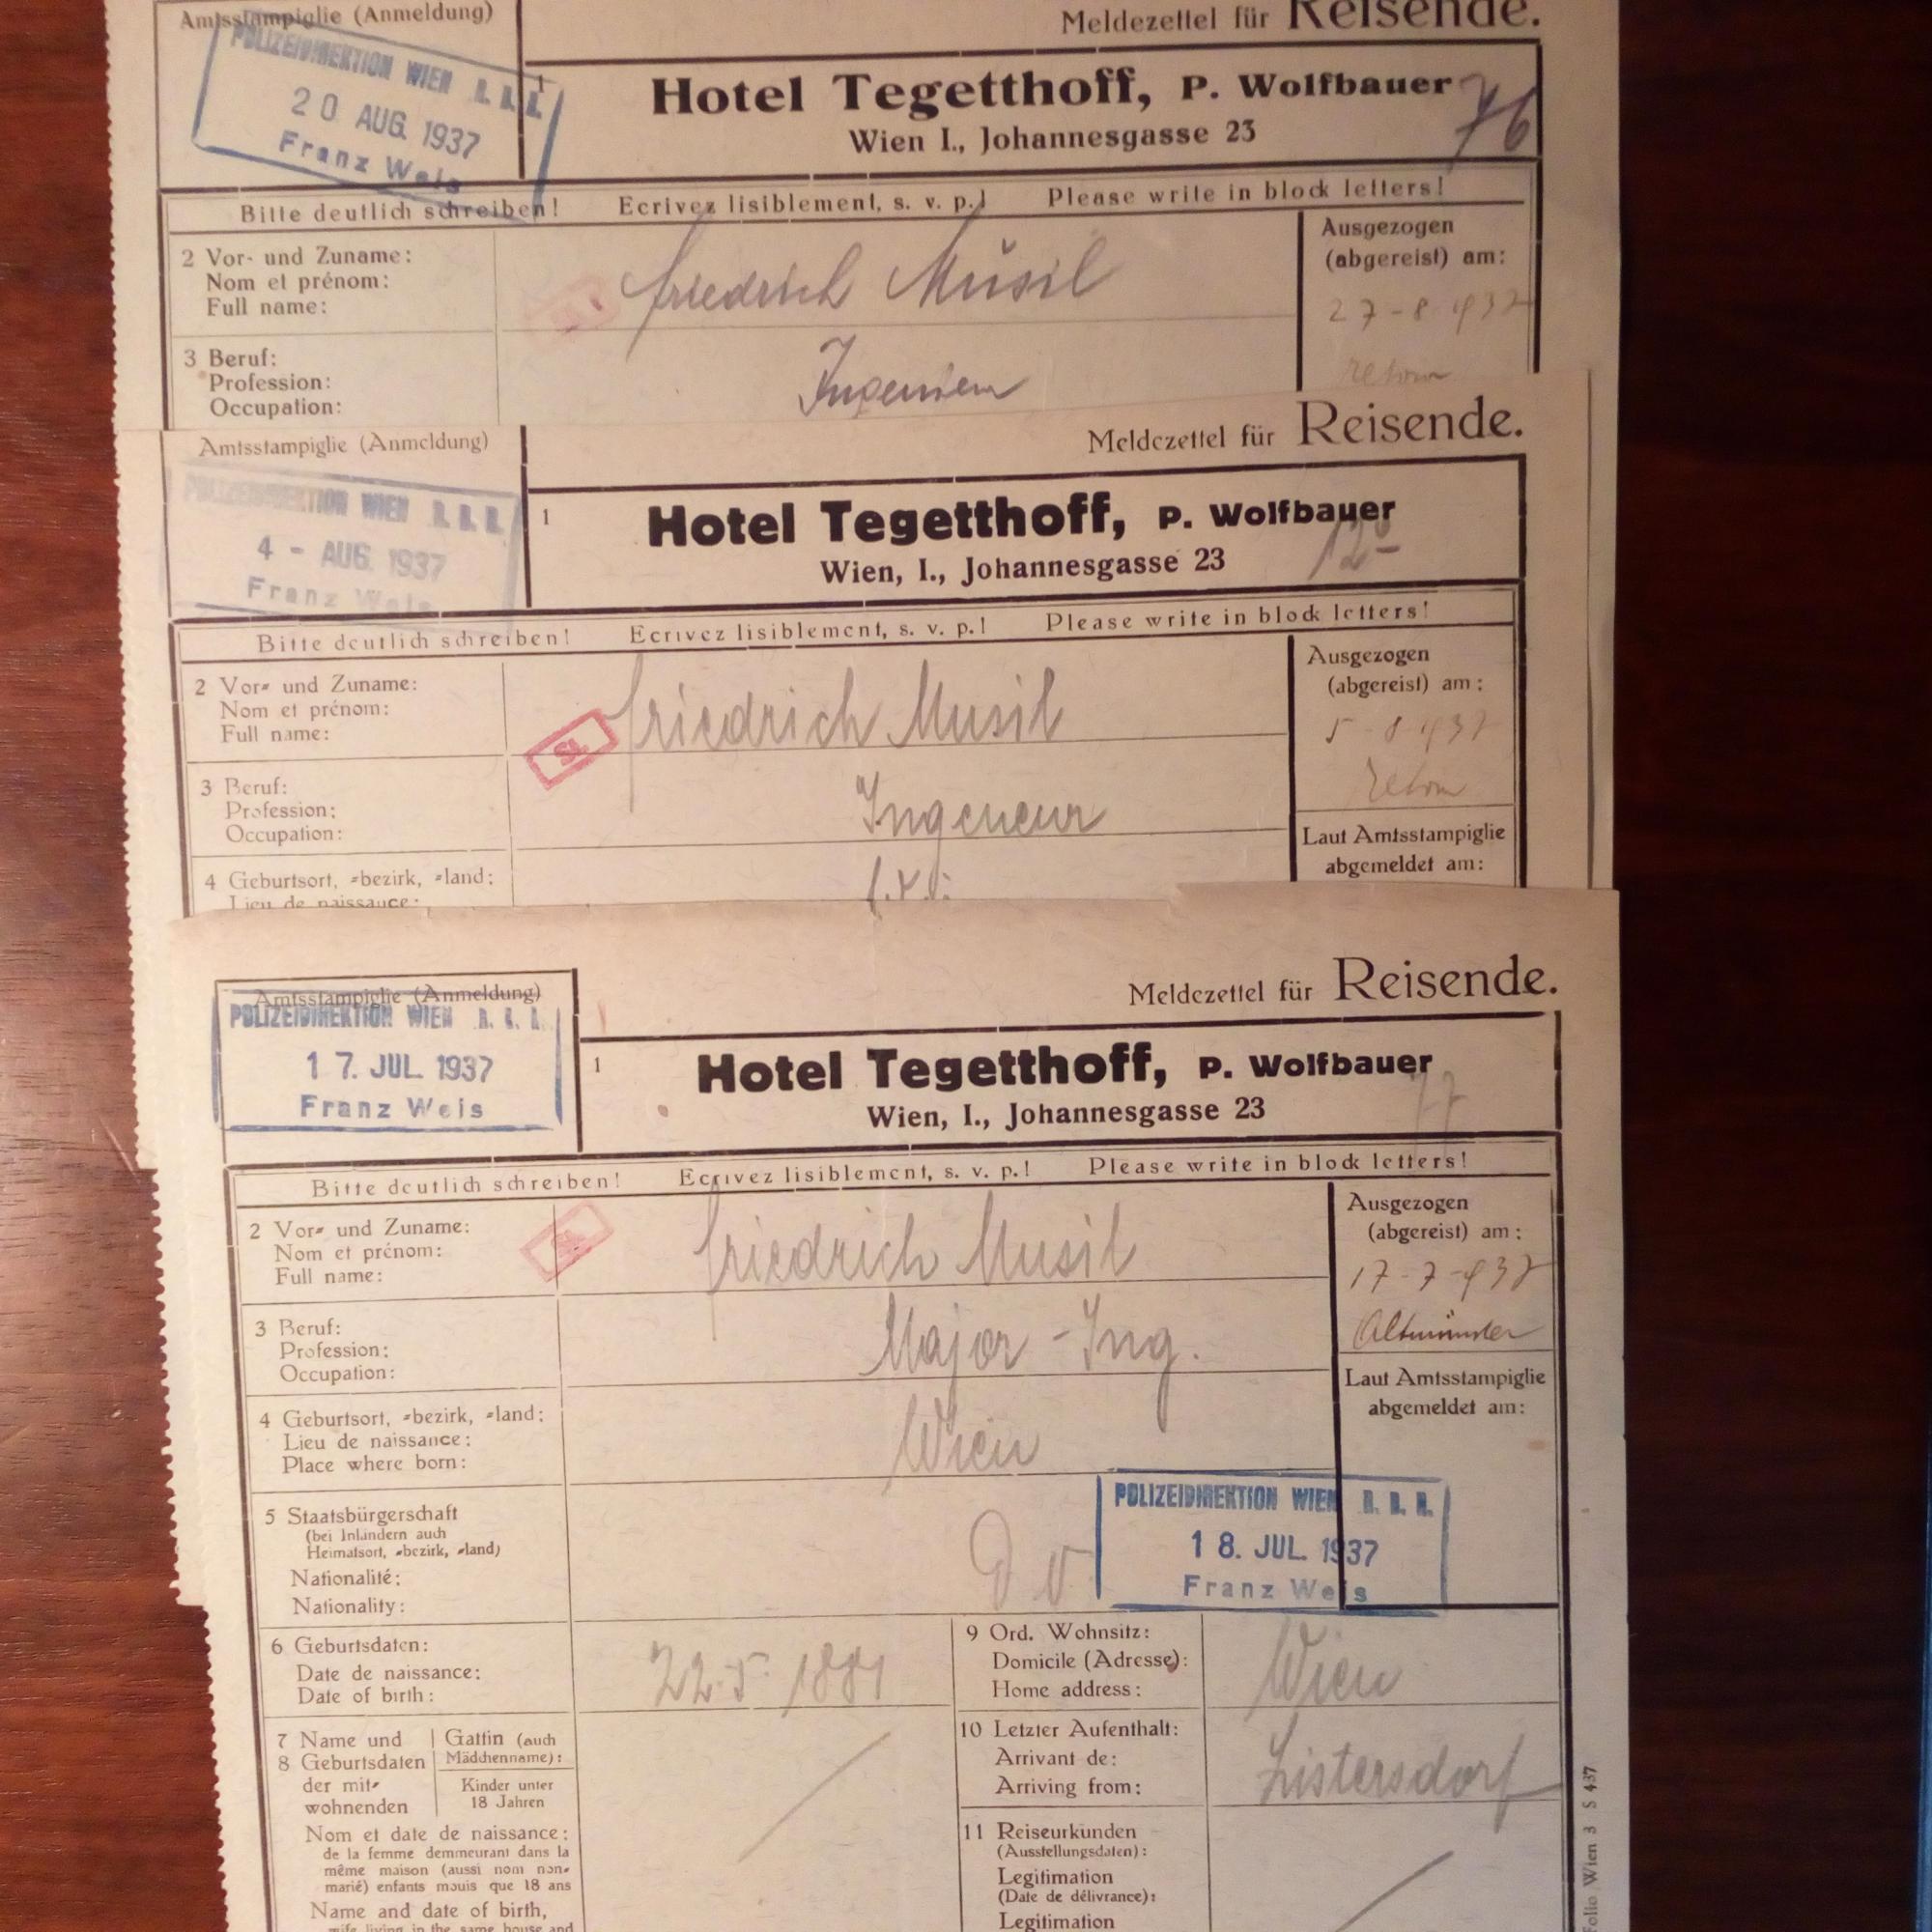 Amtsstampiglie (Anmeldung)
Meldezettel für Reisende.
POLIZEIDIREKTION WIEN
20 AUG. 1937
Franz Weis
1
Hotel Tegetthoff, P. Wolfbauer
76
Wien I., Johannesgasse 23
Bitte deutlich schreiben! Ecrivez lisiblement, s. v. p.! Please write in block letters!
2 Vor- und Zuname:
Nom et prénom:
Full name:
Friedrich Musil
Ausgezogen
(abgereist) am:
27-8-937
retour
3 Beruf:
Profession:
Occupation:
Ingenieur
Amtsstampiglie (Anmeldung)
Meldezettel für Reisende.
POLIZEIDIREKTION WIEN
4 - AUG. 1937
Franz Weis
1
Hotel Tegetthoff, P. Wolfbauer
Wien, I., Johannesgasse 23
Bitte deutlich schreiben! Ecrivez lisiblement, s. v. p.! Please write in block letters!
2 Vor- und Zuname:
Nom et prénom:
Full name:
SL
Friedrich Musil
Ausgezogen
(abgereist) am:
5-8-937
retour
3 Beruf:
Profession:
Occupation:
Ingeneur
Laut Amtsstampiglie
abgemeldet am:
4 Geburtsort, -bezirk, -land:
Lieu de naissance:
Amtsstampiglie (Anmeldung)
Meldezettel für Reisende.
POLIZEIDIREKTION WIEN
17. JUL. 1937
Franz Weis
1
Hotel Tegetthoff, P. Wolfbauer
77
Wien, I., Johannesgasse 23
Bitte deutlich schreiben! Ecrivez lisiblement, s. v. p.! Please write in block letters!
2 Vor- und Zuname:
Nom et prénom:
Full name:
Friedrich Musil
Ausgezogen
(abgereist) am:
17-7-937
Altmünster
3 Beruf:
Profession:
Occupation:
Major - Ing.
Laut Amtsstampiglie
abgemeldet am:
4 Geburtsort, -bezirk, -land:
Lieu de naissance:
Place where born:
Wien
5 Staatsbürgerschaft
(bei Inländern auch
Heimatsort, -bezirk, -land)
Nationalité:
Nationality:
POLIZEIDIREKTION WIEN
18. JUL. 1937
Franz Weis
6 Geburtsdaten:
Date de naissance:
Date of birth:
22.5. 1881
9 Ord. Wohnsitz:
Domicile (Adresse):
Home address:
Wien
7 Name und
8 Geburtsdaten
der mit-
wohnenden
Gattin (auch
Mädchenname):
Kinder unter
18 Jahren
Nom et date de naissance:
de la femme demmeurant dans la
même maison (aussi nom non-
marié) enfants mouis que 18 ans
Name and date of birth,
wife living in the same house and
10 Letzter Aufenthalt:
Arrivant de:
Arriving from:
Zistersdorf
11 Reiseurkunden
(Ausstellungsdaten):
Legitimation
(Date de délivrance):
Legitimation
Folio Wien 3 S 437